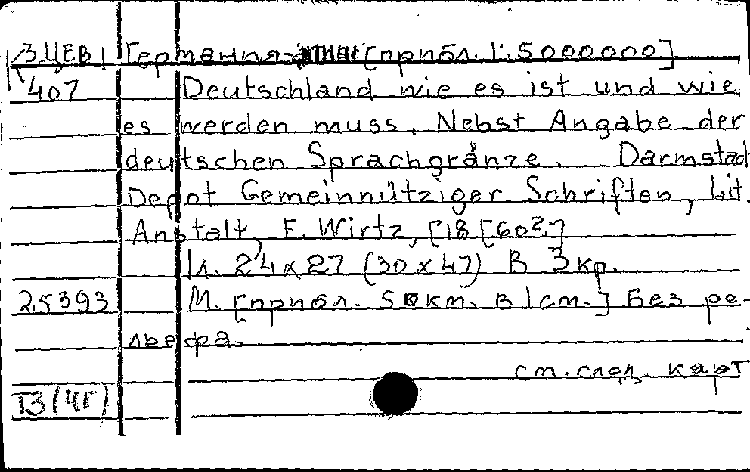 3.ЦЕВ, Германия [прибл. 1:5000000]
407 Deutschland wie es ist und wie
es werden muss. Nebst Angabe der
deutschen Sprachgränze. Darmstad
Depot Gemeinnütziger Schriften, Lit.
Anstalt, F. Wirtz, [18[60?]
1л. 24x27 (30x47) В 3 кр.
25393 М. [прибл. 50км. в 1см.] Без ре-
льефа.
см. след. карт
I3(4Г)